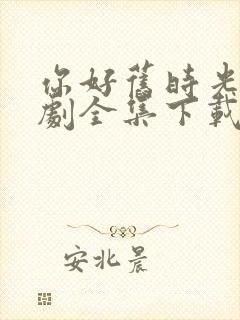 你好舊時光
劇全集下載
安北晨